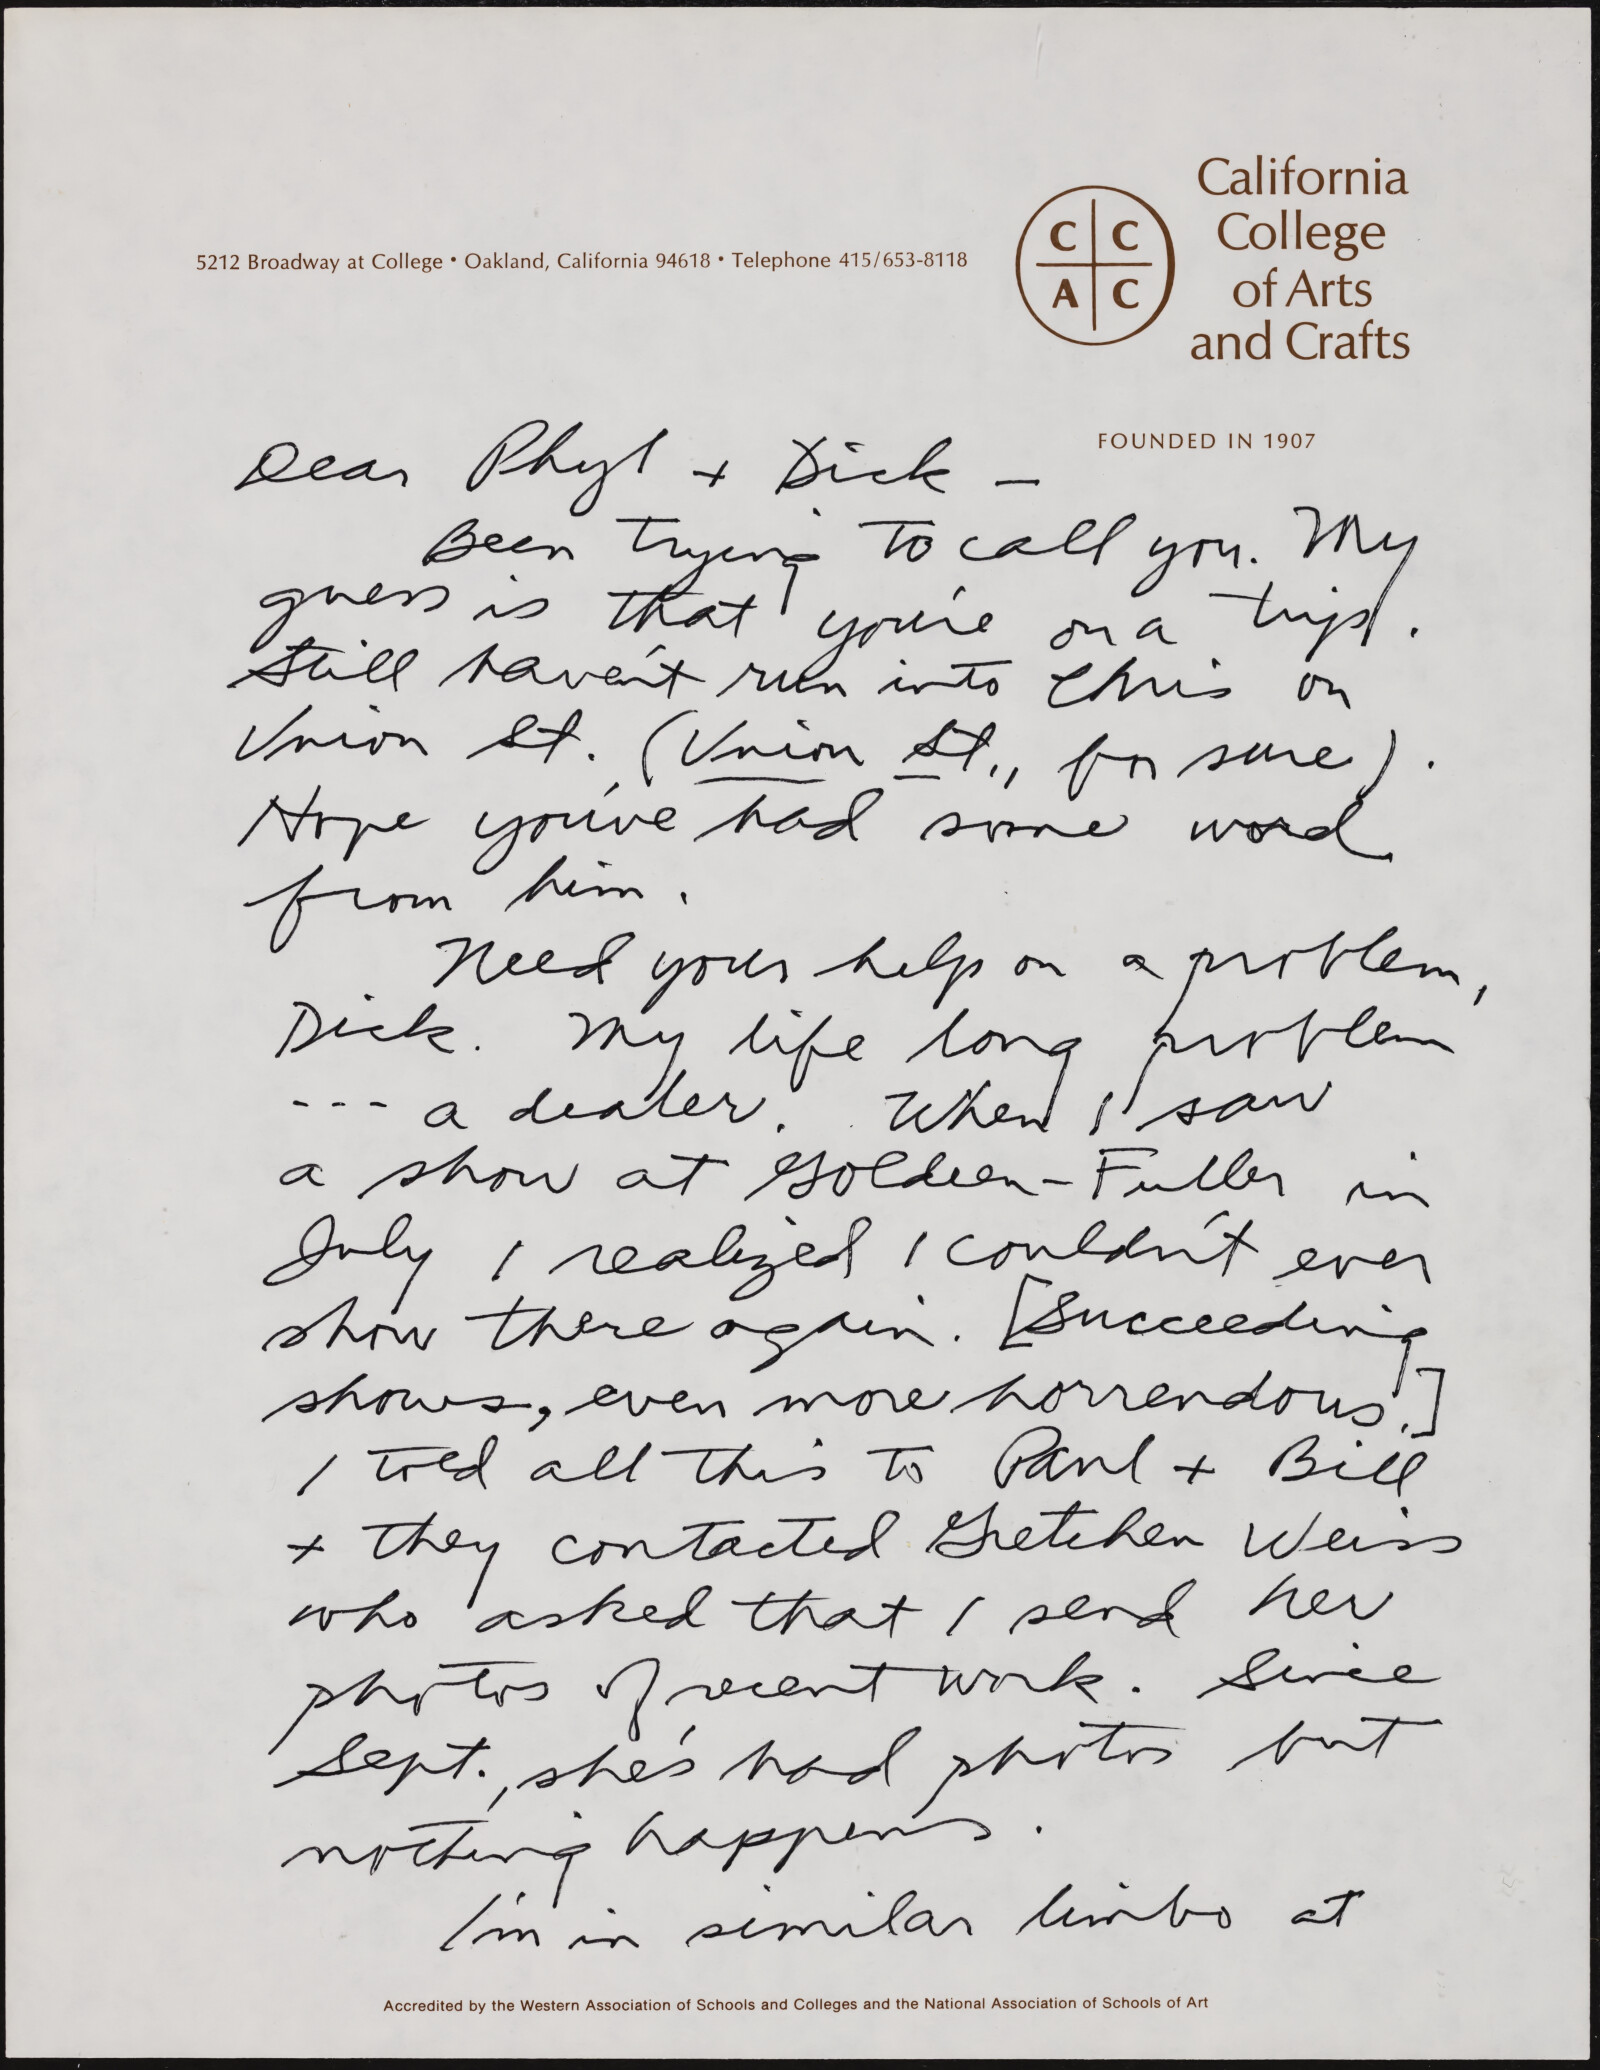 California
College
of Arts
and Crafts
C C
A C
5212 Broadway at College • Oakland, California 94618 • Telephone 415/653-8118
FOUNDED IN 1907
Dear Phyl + Dick –
Been trying to call you. My
guess is that you're on a trip.
Still haven't run into Chris on
Union St. (Union St., for sure).
Hope you've had some word
from him.
Need your help on a problem,
Dick. My life long problem
--- a dealer. When I saw
a show at Goldeen-Fuller in
July I realized I couldn't ever
show there again. [Succeeding
shows, even more horrendous.]
I told all this to Paul + Bill
+ they contacted Gretchen Weiss
who asked that I send her
photos of recent work. Since
Sept., she's had photos but
nothing happens.
I'm in similar limbo at
Accredited by the Western Association of Schools and Colleges and the National Association of Schools of Art